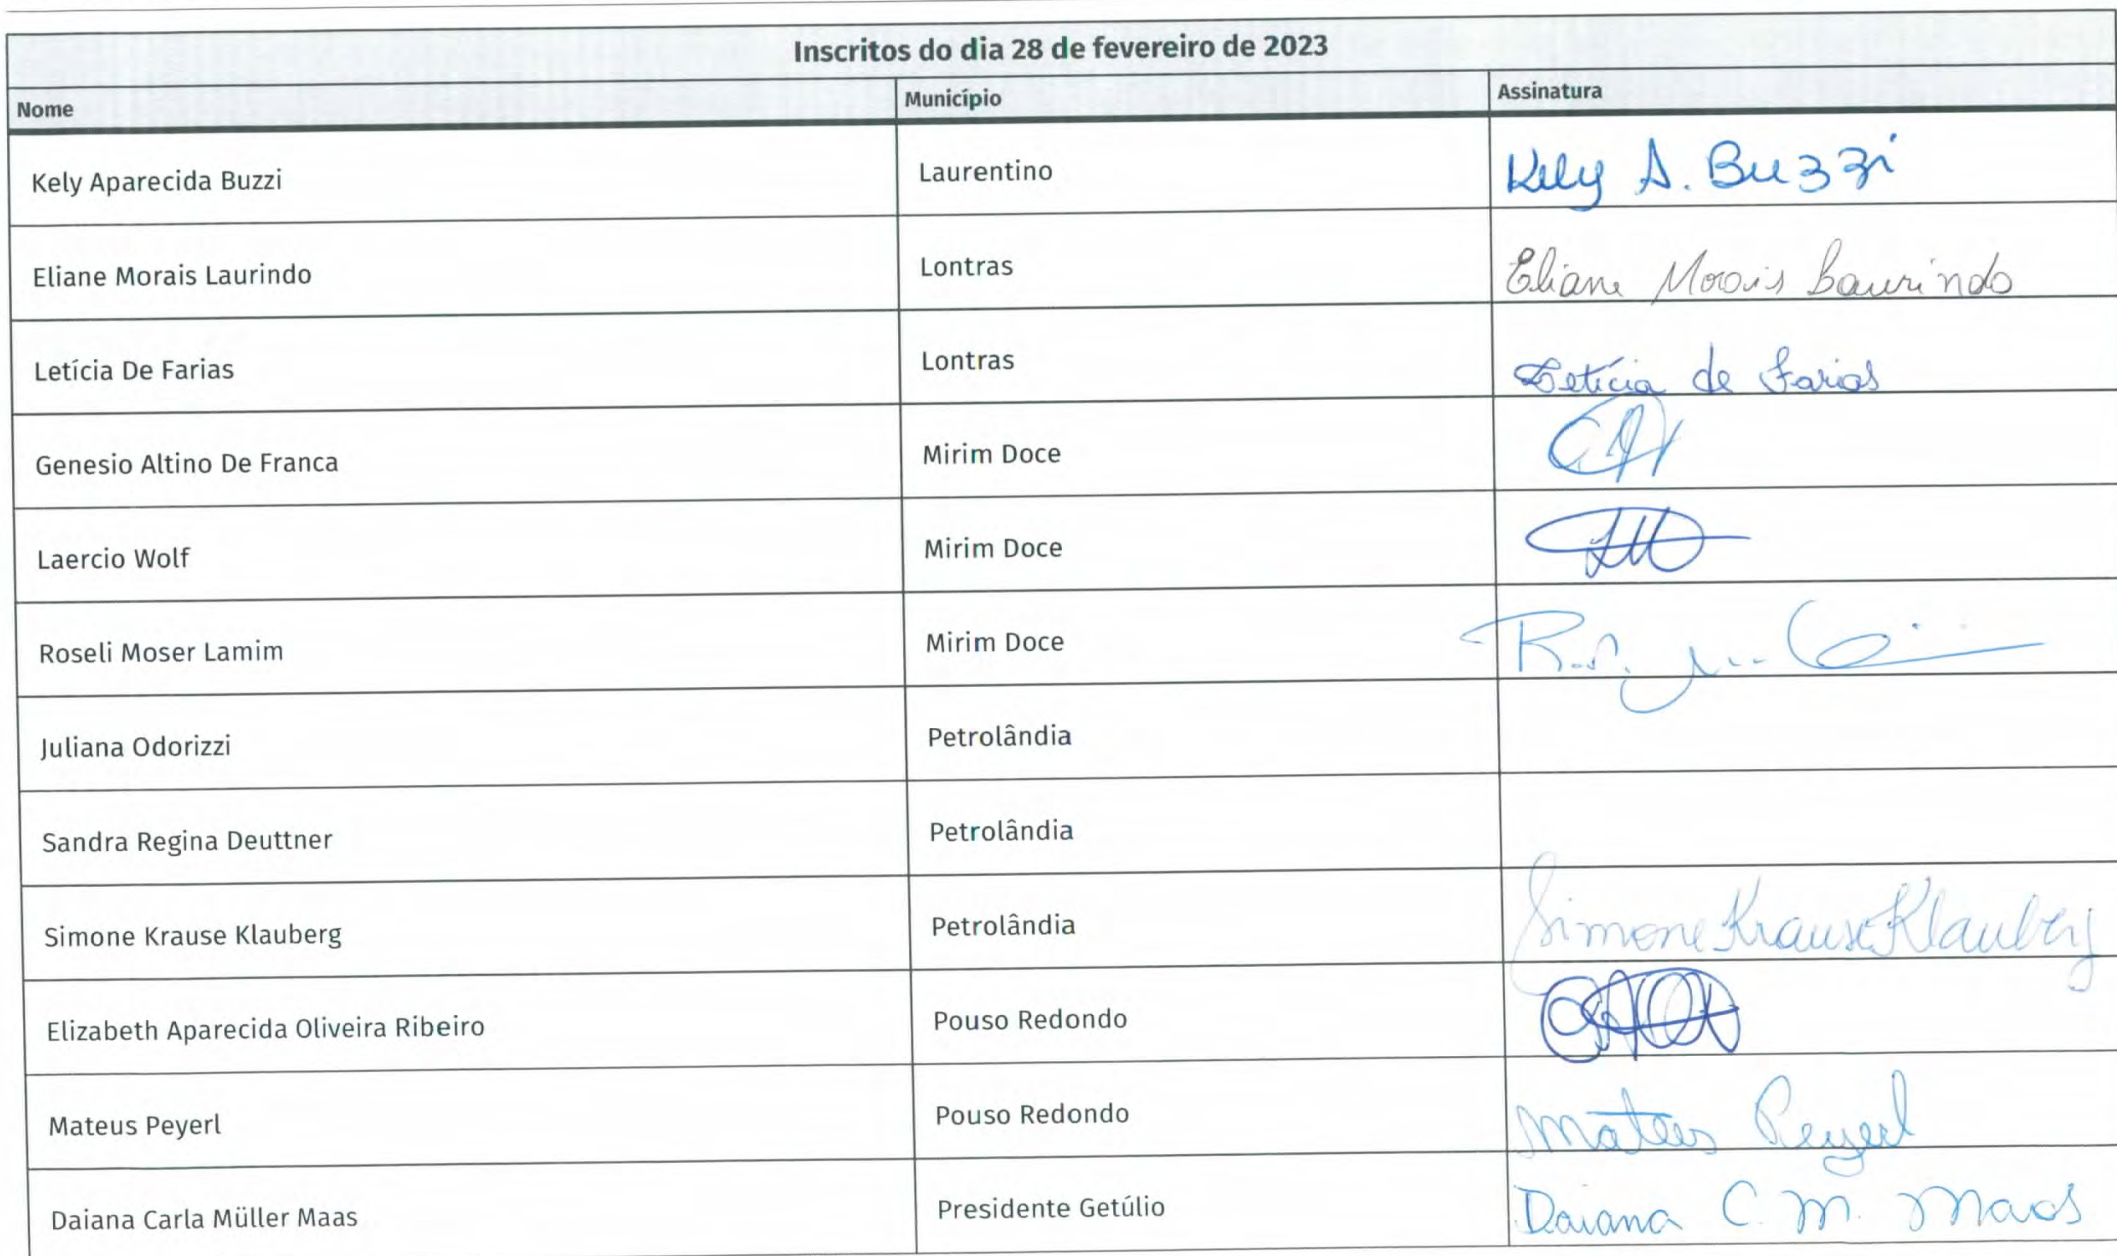 Inscritos do dia 28 de fevereiro de 2023
Nome Município Assinatura
Kely Aparecida Buzzi Laurentino Kely A. Buzzi
Eliane Morais Laurindo Lontras Eliane Morais Laurindo
Letícia De Farias Lontras Letícia de Farias
Genesio Altino De Franca Mirim Doce
Laercio Wolf Mirim Doce
Roseli Moser Lamim Mirim Doce
Juliana Odorizzi Petrolândia
Sandra Regina Deuttner Petrolândia
Simone Krause Klauberg Petrolândia Simone Krause Klauberg
Elizabeth Aparecida Oliveira Ribeiro Pouso Redondo
Mateus Peyerl Pouso Redondo Mateus Peyerl
Daiana Carla Müller Maas Presidente Getúlio Daiana C. M. Maas